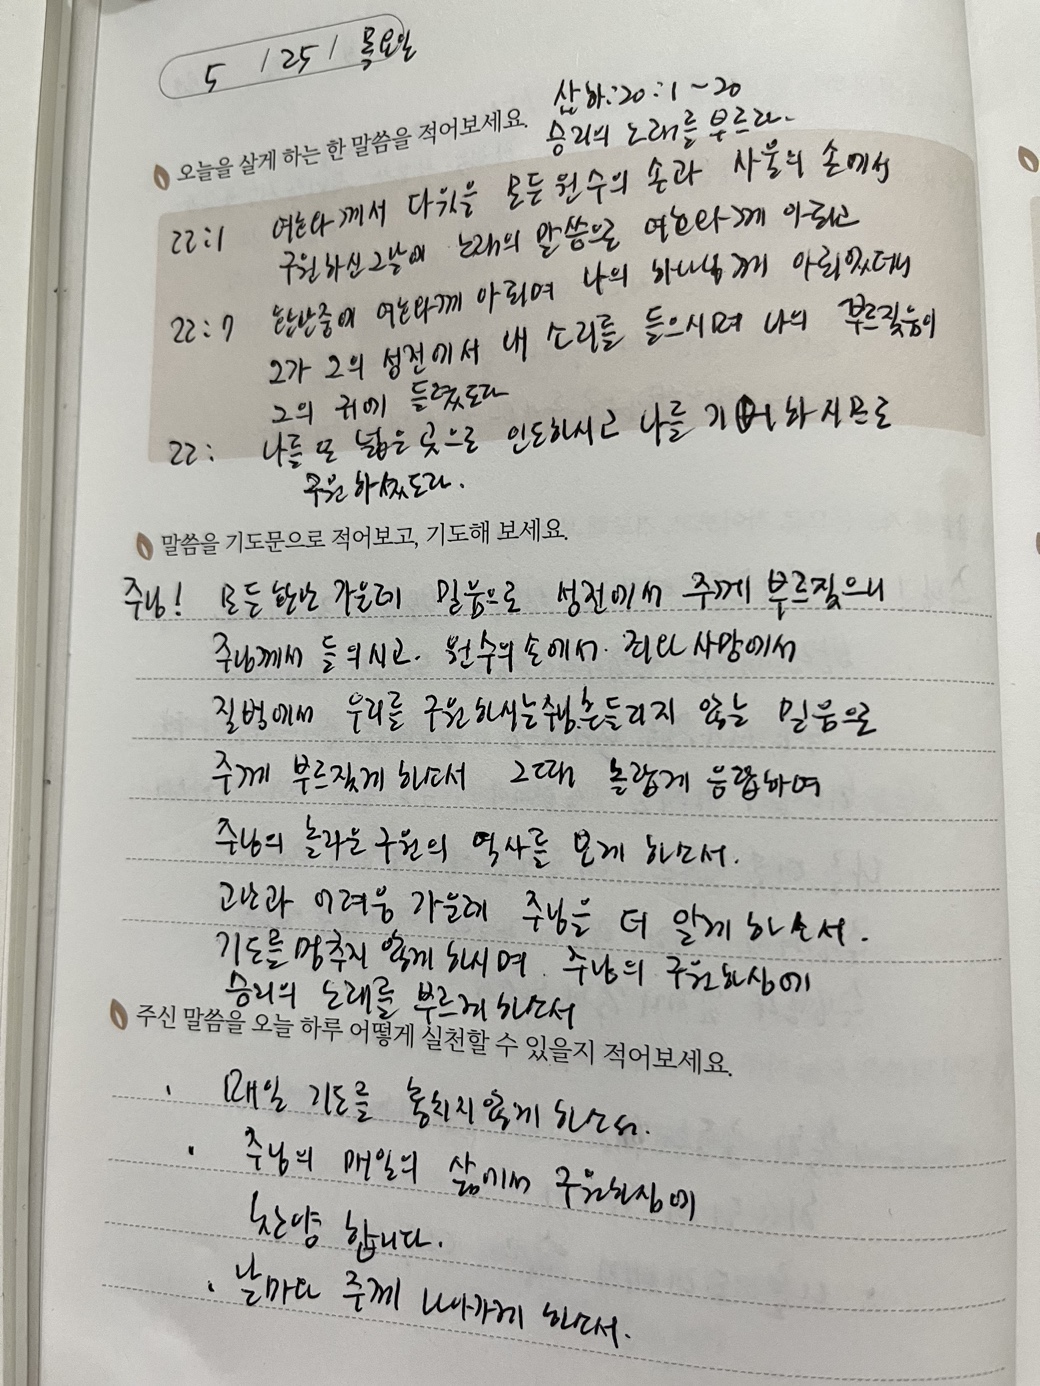 5 / 25 / 목요일
삼하:20:1~20
오늘을 살게 하는 한 말씀을 적어보세요.
승리의 노래를 부르라.
22:1 여호와께서 다윗을 모든 원수의 손과 사울의 손에서
구원하신 그날에 노래의 말씀으로 여호와께 아뢰고
22:7 환난중에 여호와께 아뢰며 나의 하나님께 아뢰었더니
그가 그의 성전에서 내 소리를 들으시며 나의 부르짖음이
그의 귀에 들렸도다
22: 나를 또 넓은 곳으로 인도하시고 나를 기뻐하시므로
구원하셨도다.
말씀을 기도문으로 적어보고, 기도해 보세요.
주님! 모든 환난 가운데 믿음으로 성전에서 주께 부르짖으니
주님께서 들으시고. 원수의 손에서. 죄와 사망에서
질병에서 우리를 구원하시는 주님. 흔들리지 않는 믿음으로
주께 부르짖게 하소서 그때 놀랍게 응답하여
주님의 놀라운 구원의 역사를 보게 하소서.
고난과 어려움 가운데 주님을 더 알게 하소서.
기도를 멈추지 않게 하시며. 주님의 구원하심에
승리의 노래를 부르게 하소서
주신 말씀을 오늘 하루 어떻게 실천할 수 있을지 적어보세요.
· 매일 기도를 놓치지 않게 하소서.
· 주님의 매일의 삶에서 구원하심에
찬양 합니다.
· 날마다 주께 나아가게 하소서.